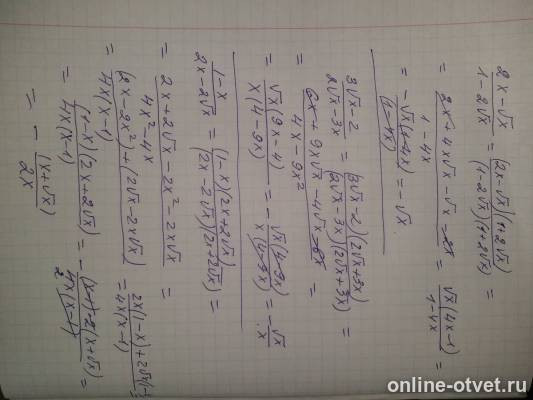 (2x-√x)/(1-2√x) = (2x-√x)(1+2√x)/(1-2√x)(1+2√x) =
= (2x+4x√x-√x-2x)/(1-4x) = √x(4x-1)/(1-4x) =
= -√x(1-4x)/(1-4x) = -√x
(3√x-2)/(2√x-3x) = (3√x-2)(2√x+3x)/(2√x-3x)(2√x+3x) =
= (6x+9x√x-4√x-6x)/(4x-9x²) =
= √x(9x-4)/x(4-9x) = -√x(4-9x)/x(4-9x) = -√x/x
(1-x)/(2x-2√x) = (1-x)(2x+2√x)/(2x-2√x)(2x+2√x) =
= (2x+2√x-2x²-2x√x)/(4x²-4x) =
= (2x-2x²)+(2√x-2x√x)/4x(x-1) = 2x(1-x)+2√x(1-/4x(x-1)
= (1-x)(2x+2√x)/4x(x-1) = -(x-1)2(x+√x)/4x(x-1) =
= -(1+√x)/2x
online-otvet.ru